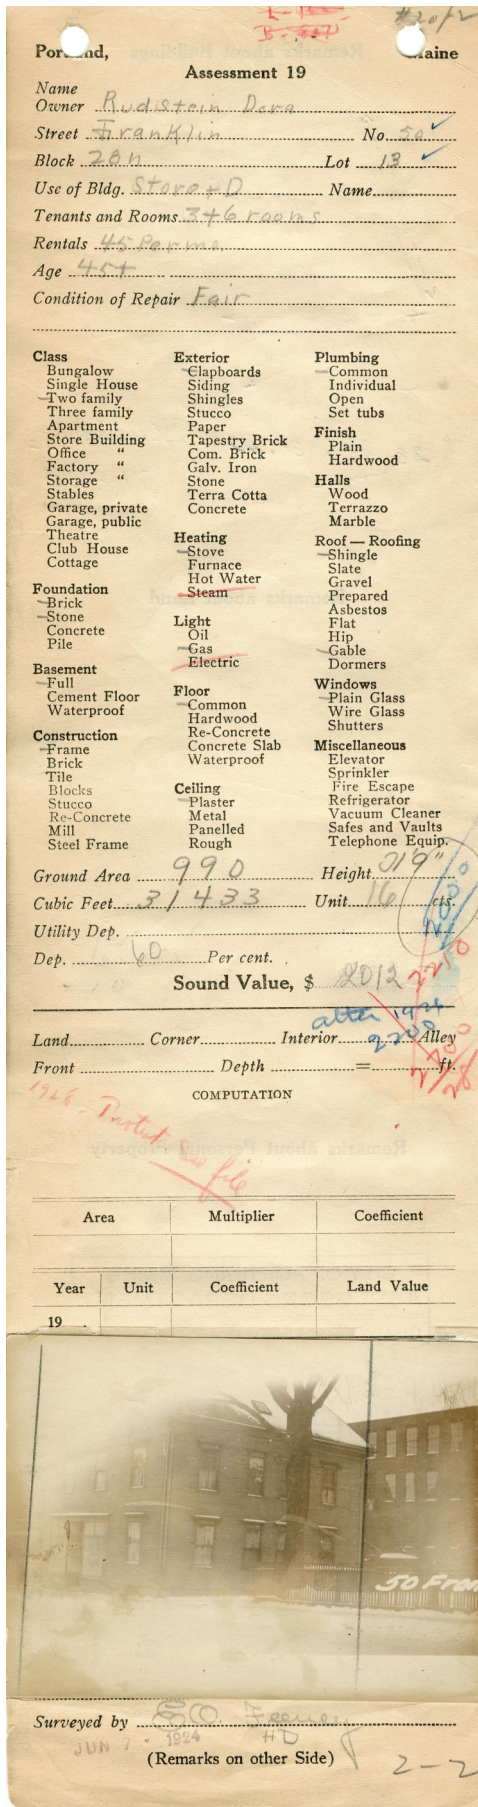 #2 of 2
Portland, Maine
Assessment 19
Name
Owner Rudistein Dora
Street Franklin No. 50 ✓
Block 28 N Lot 13 ✓
Use of Bldg. Store + D Name
Tenants and Rooms 3+6 rooms
Rentals 45 Per mo.
Age 45+
Condition of Repair Fair
Class
Bungalow
Single House
Two family
Three family
Apartment
Store Building
Office "
Factory "
Storage "
Stables
Garage, private
Garage, public
Theatre
Club House
Cottage
Foundation
Brick
Stone
Concrete
Pile
Basement
Full
Cement Floor
Waterproof
Construction
Frame
Brick
Tile
Blocks
Stucco
Re-Concrete
Mill
Steel Frame
Exterior
Clapboards
Siding
Shingles
Stucco
Paper
Tapestry Brick
Com. Brick
Galv. Iron
Stone
Terra Cotta
Concrete
Heating
Stove
Furnace
Hot Water
Steam
Light
Oil
Gas
Electric
Floor
Common
Hardwood
Re-Concrete
Concrete Slab
Waterproof
Ceiling
Plaster
Metal
Panelled
Rough
Plumbing
Common
Individual
Open
Set tubs
Finish
Plain
Hardwood
Halls
Wood
Terrazzo
Marble
Roof — Roofing
Shingle
Slate
Gravel
Prepared
Asbestos
Flat
Hip
Gable
Dormers
Windows
Plain Glass
Wire Glass
Shutters
Miscellaneous
Elevator
Sprinkler
Fire Escape
Refrigerator
Vacuum Cleaner
Safes and Vaults
Telephone Equip.
Ground Area 990 Height 31'9"
Cubic Feet 31433 Unit 16 cts.
Utility Dep.
Dep. 60 Per cent.
2250
Sound Value, $ 2012
after 1924
2200
Land Corner Interior Alley
Front Depth = ft.
COMPUTATION
1926 - Protest see file
Area Multiplier Coefficient
Year Unit Coefficient Land Value
19
50 Fran
Surveyed by Feeney
JUN 1924 HD
(Remarks on other Side)
2-2